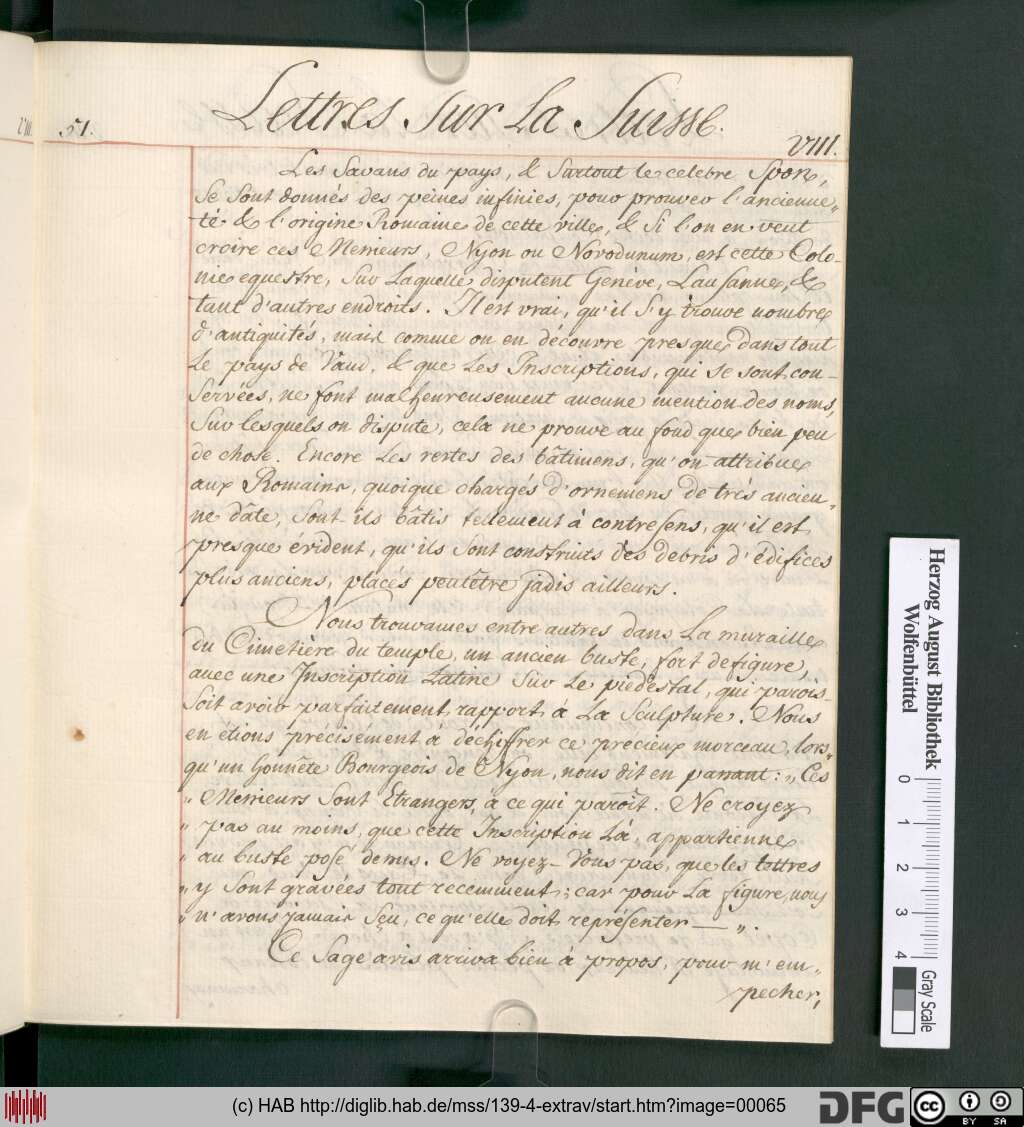 Lettres Sur La Suisse.
51.
VIII.
Les Savans du pays, & Surtout le celebre Spon,
Se Sont donnés des peines infinies, pour prouver l'ancienne„
té & l'origine Romaine de cette ville, & Si l'on en veut
croire ces Messieurs, Nyon ou Novodunum, est cette Colo-
nie equestre, Sur Laquelle disputent Genève, Lausanne, &
tant d'autres endroits. Il est vrai, qu'il S'y trouve nombre
d'antiquités, mais comme on en découvre presque dans tout
Le pays de Vaud, & que Les Inscriptions, qui se sont con-
Servées, ne font malheureusement aucune mention des noms,
Sur lesquels on dispute, cela ne prouve au fond que bien peu
de chose. Encore Les restes des bâtimens, qu'on attribue
aux Romains, quoique chargés d'ornemens de trés ancien„
ne dâte, Sont-ils bâtis tellement à contresens, qu'il est
presque évident, qu'ils Sont construits des debris d'édifices
plus anciens, placés peutêtre jadis ailleurs.
Nous trouvames entre autres dans La muraille
du Cimetière du temple, un ancien buste, fort defiguré,
avec une Inscription Latine Sur Le piedestal, qui parois-
Soit avoir parfaitement rapport à La Sculpture. Nous
en étions précisément à déchiffrer ce précieux morceau, lors„
qu'un honnête Bourgeois de Nyon, nous dit en passant: „Ces
„ Messieurs Sont Etrangers, à ce qui paroît. Ne croyez
„ pas au moins, que cette Inscription Là, appartienne
„ au buste posé dessus. Ne voyez-Vous pas, que les lettres
„ y Sont gravées tout recemment; car pour La figure, nous
„ n'avons jamais Sçu, ce qu'elle doit représenter — „.
Ce Sage avis arriva bien à propos, pour m'em„
pecher,
Herzog August Bibliothek
Wolfenbüttel
0 1 2 3 4
Gray Scale
(c) HAB http://diglib.hab.de/mss/139-4-extrav/start.htm?image=00065
DFG
cc
BY SA